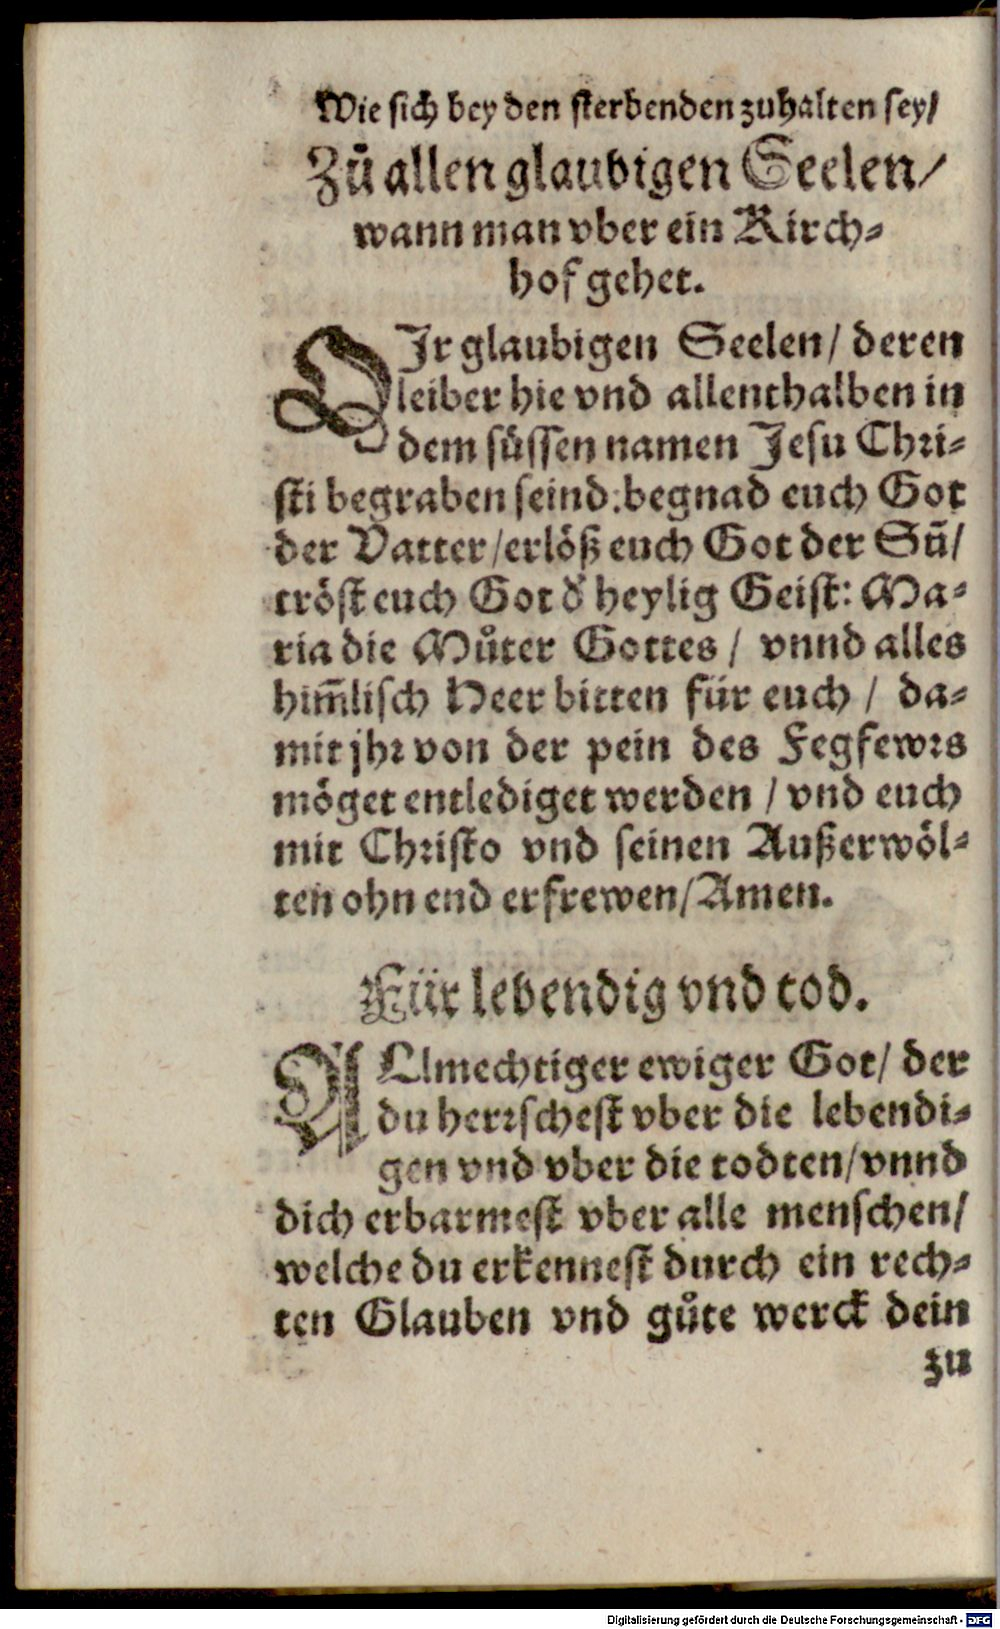 Wie sich bey den sterbenden zuhalten sey/
Zů allen glaubigen Seelen/
wann man vber ein Kirch⸗
hof gehet.
OIr glaubigen Seelen/ deren
leiber hie vnd allenthalben in
dem süssen namen Jesu Chri⸗
sti begraben seind: begnad euch Got
der Vatter/ erlöß euch Got der Sū/
tröst euch Got d' heylig Geist: Ma⸗
ria die Můter Gottes / vnnd alles
him̄lisch Heer bitten für euch / da⸗
mit jhr von der pein des Fegfewrs
möget entlediget werden / vnd euch
mit Christo vnd seinen Außerwöl⸗
ten ohn end erfrewen/ Amen.
Für lebendig vnd tod.
ALlmechtiger ewiger Got/ der
du herrschest vber die lebendi⸗
gen vnd vber die todten/ vnnd
dich erbarmest vber alle menschen/
welche du erkennest durch ein rech⸗
ten Glauben vnd gůte werck dein
zu
Digitalisierung gefördert durch die Deutsche Forschungsgemeinschaft - DFG